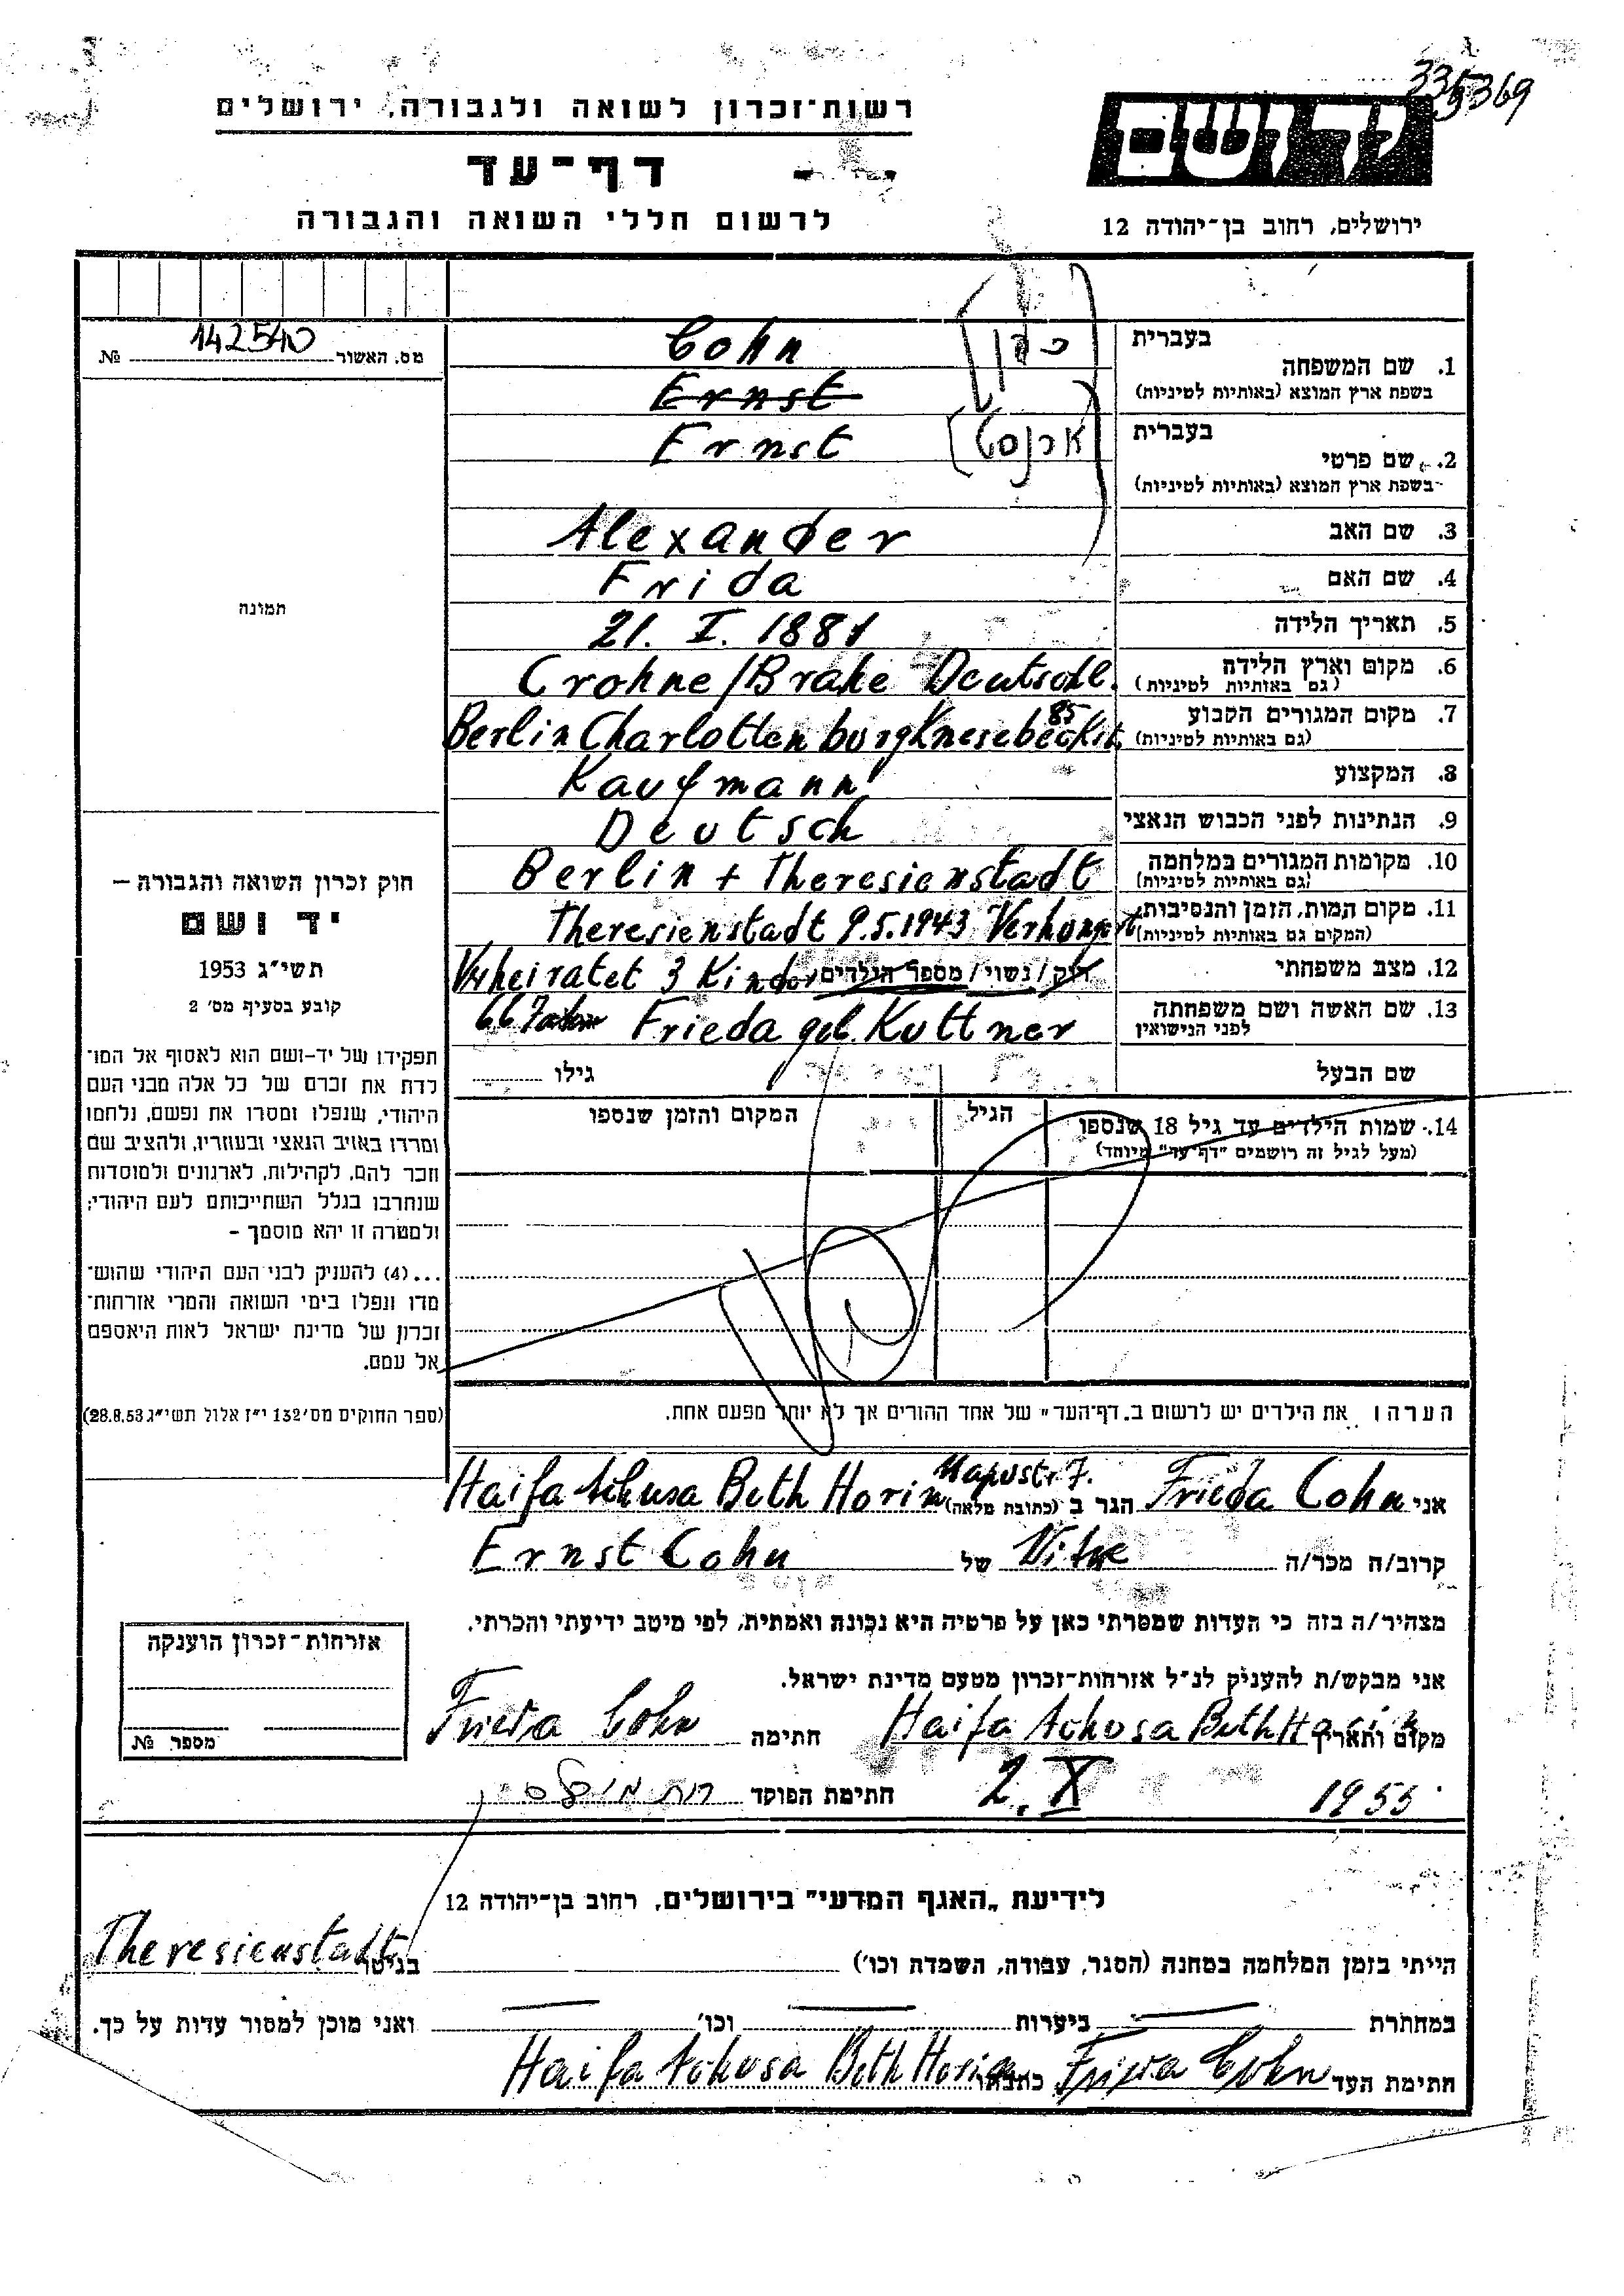 335369
רשות־זכרון לשואה ולגבורה, ירושלים
דף־עד
לרשום חללי השואה והגבורה
ידושם
ירושלים, רחוב בן־יהודה 12
מס. האשור 142540 №
תמונה
חוק זכרון השואה והגבורה —
יד ושם
תשי״ג 1953
קובע בסעיף מס׳ 2
תפקידו של יד-ושם הוא לאסוף אל המו־
לדת את זכרם של כל אלה מבני העם
היהודי, שנפלו ומסרו את נפשם, נלחמו
ומרדו באויב הנאצי ובעוזריו, ולהציב שם
וזכר להם, לקהילות, לארגונים ולמוסדות
שנחרבו בגלל השתייכותם לעם היהודי;
ולמטרה זו יהא מוסמך —
...(4) להעניק לבני העם היהודי שהוש־
מדו ונפלו בימי השואה והמרי אזרחות־
זכרון של מדינת ישראל לאות היאספם
אל עמם.
(ספר החוקים מס׳ 132 י״ז אלול תשי״ג 28.8.53)
1. שם המשפחה בעברית כהן
בשפת ארץ המוצא (באותיות לטיניות) Cohn
Ernst
2. שם פרטי בעברית ארנסט
בשפת ארץ המוצא (באותיות לטיניות) Ernst
3. שם האב Alexander
4. שם האם Frida
5. תאריך הלידה 21. I. 1881
6. מקום וארץ הלידה Crohne/Brake Deutschl.
(גם באותיות לטיניות)
7. מקום המגורים הקבוע Berlin Charlottenburg Knesebeckstr. 85
(גם באותיות לטיניות)
8. המקצוע Kaufmann
9. הנתינות לפני הכבוש הנאצי Deutsch
10. מקומות המגורים במלחמה Berlin + Theresienstadt
(גם באותיות לטיניות)
11. מקום המות, הזמן והנסיבות Theresienstadt 9.5.1943 Verhungert
(המקום גם באותיות לטיניות)
12. מצב משפחתי רוק/נשוי/מספר הילדים Verheiratet 3 Kinder
13. שם האשה ושם משפחתה Frieda geb. Kuttner 66
לפני הנישואין
שם הבעל גילו
14. שמות הילדים עד גיל 18 שנספו הגיל המקום והזמן שנספו
(מעל לגיל זה רושמים "דף־עד" מיוחד)
הערה: את הילדים יש לרשום ב„דף־העד״ של אחד ההורים אך לא יותר מפעם אחת.
אני Frieda Cohn הגר ב (כתובת מלאה) Haifa Achusa Beth Horim
קרוב/ה מכר/ה Witwe של Ernst Cohn
מצהיר/ה בזה כי העדות שמסרתי כאן על פרטיה היא נכונה ואמתית, לפי מיטב ידיעתי והכרתי.
אני מבקש/ת להעניק לנ״ל אזרחות־זכרון מטעם מדינת ישראל.
מקום ותאריך Haifa Achusa Beth Horim חתימה Frieda Cohn
1955 2. X חתימת הפוקד
אזרחות־זכרון הוענקה
מספר №
לידיעת „האגף המדעי״ בירושלים, רחוב בן־יהודה 12
הייתי בזמן המלחמה במחנה (הסגר, עבודה, השמדת וכו׳) בגיטו Theresienstadt
במחתרת ביערות וכו׳ ואני מוכן למסור עדות על כך.
חתימת העד Frieda Cohn כתבתו Haifa Achusa Beth Horim